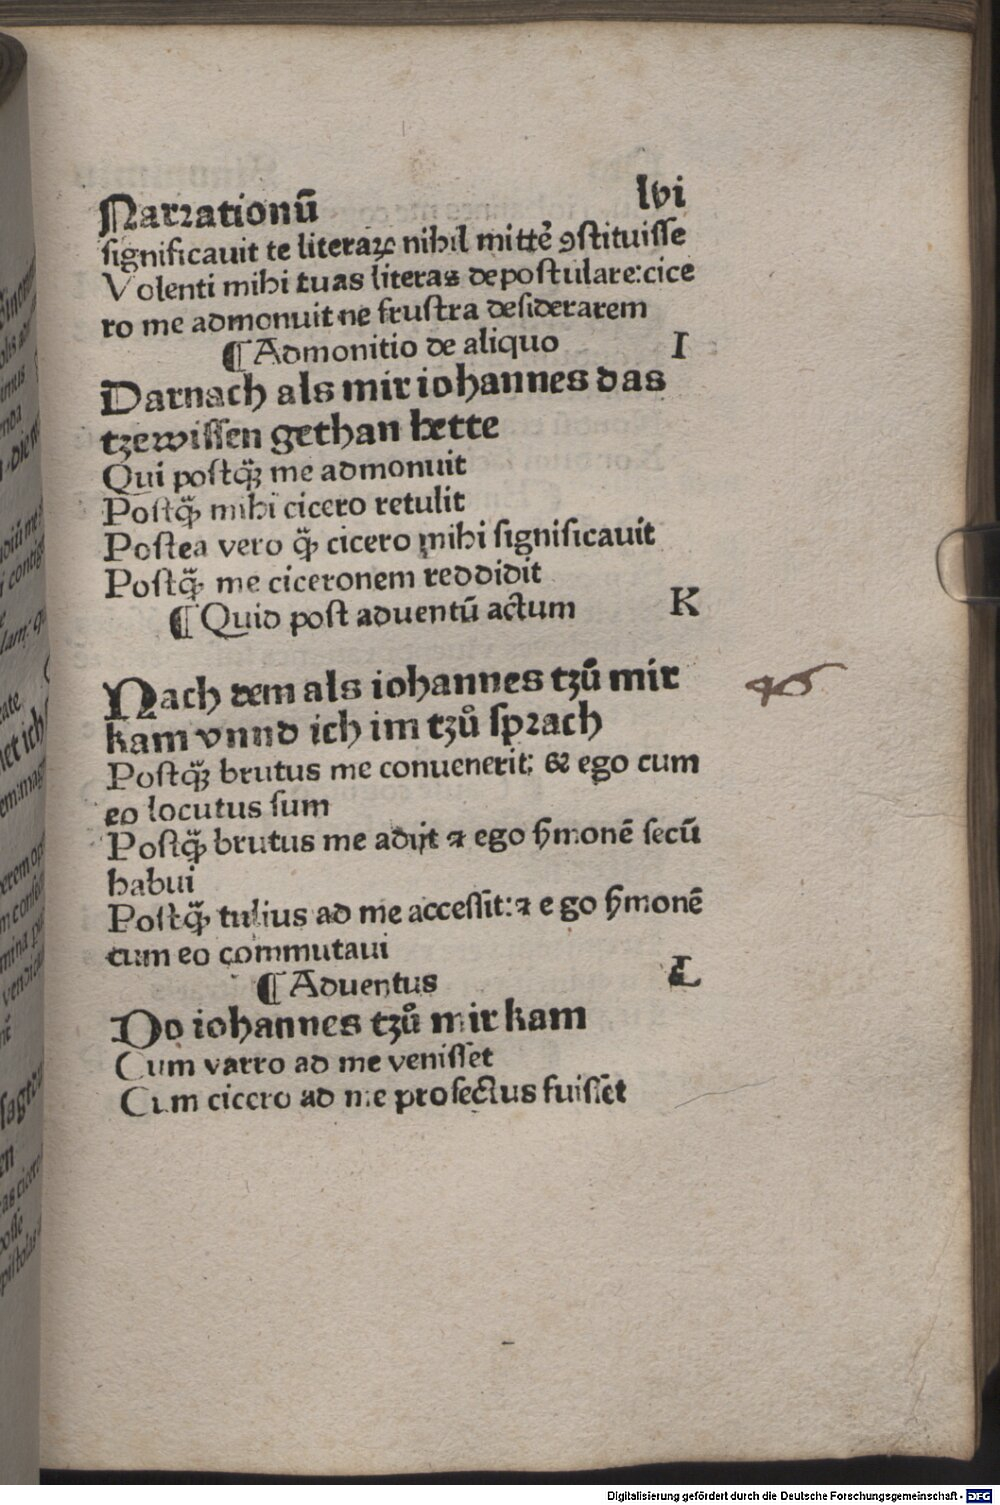 Narrationū lvi
significauit te literaꝝ nihil mittē ꝯstituisse
Volenti mihi tuas literas depostulare: cice
ro me admonuit ne frustra desiderarem
¶ Admonitio de aliquo I
Darnach als mir iohannes das
tzewissen gethan hette
Qui postq̄ȝ me admonuit
Postq̄ mihi cicero retulit
Postea vero q̄ cicero mihi significauit
Postq̄ me ciceronem reddidit
¶ Quid post aduentū actum K
Nach dem als iohannes tzů mir
kam vnnd ich im tzů sprach
46
Postq̄ȝ brutus me conuenerit: & ego cum
eo locutus sum
Postq̄ brutus me adijt ⁊ ego ẜmonē secū
habui
Postq̄ tulius ad me accessit: ⁊ e go ẜmonē
cum eo commutaui
¶ Aduentus L
Do iohannes tzů mir kam
Cum varro ad me venisset
Cum cicero ad me profectus fuiss̄et
Digitalisierung gefördert durch die Deutsche Forschungsgemeinschaft - DFG